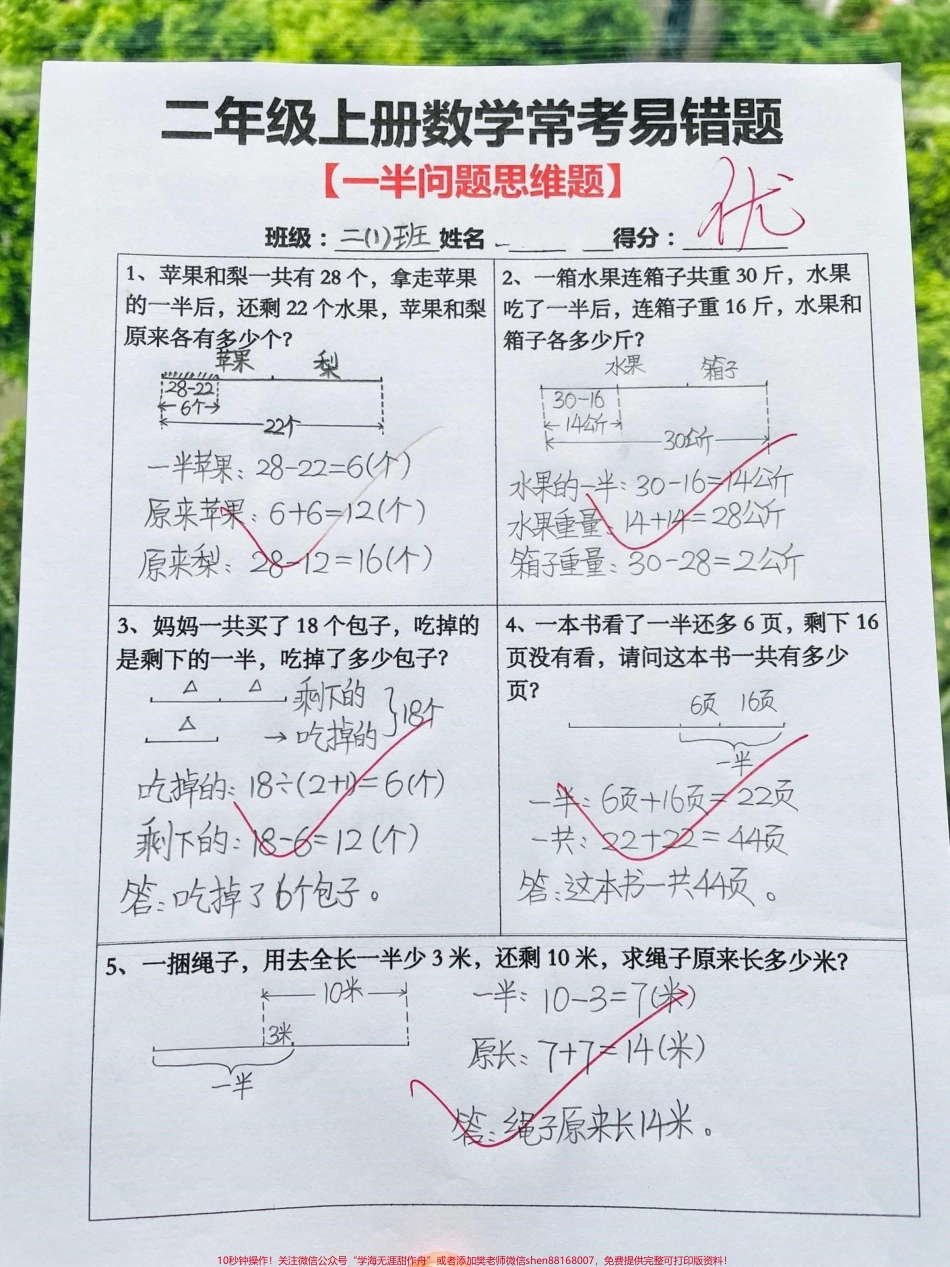 二年级上册数学常考易错题
【一半问题思维题】
优
班级：二(1)班 姓名 得分：
1、苹果和梨一共有 28 个，拿走苹果
的一半后，还剩 22 个水果，苹果和梨
原来各有多少个？
苹果 梨
28-22
6个
22个
一半苹果：28-22=6(个)
原来苹果：6+6=12(个)
原来梨：28-12=16(个)
2、一箱水果连箱子共重 30 斤，水果
吃了一半后，连箱子重 16 斤，水果和
箱子各多少斤？
水果 箱子
30-16
14公斤
30公斤
水果的一半：30-16=14公斤
水果重量：14+14=28公斤
箱子重量：30-28=2公斤
3、妈妈一共买了 18 个包子，吃掉的
是剩下的一半，吃掉了多少包子？
△ △ 剩下的
△ →吃掉的 }18个
吃掉的：18÷(2+1)=6(个)
剩下的：18-6=12(个)
答：吃掉了6个包子。
4、一本书看了一半还多 6 页，剩下 16
页没有看，请问这本书一共有多少
页？
6页 16页
一半
一半：6页+16页=22页
一共：22+22=44页
答：这本书一共44页。
5、一捆绳子，用去全长一半少 3 米，还剩 10 米，求绳子原来长多少米？
10米
3米
一半
一半：10-3=7(米)
原长：7+7=14(米)
答：绳子原来长14米。
10秒钟操作！关注微信公众号“学海无涯甜作舟”或者添加樊老师微信shen88168007，免费提供完整可打印版资料！